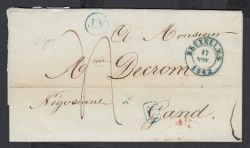 A Monsieur
BRUXELLES
17
NOV.
1842
Decrom
Négociant à
Gand.